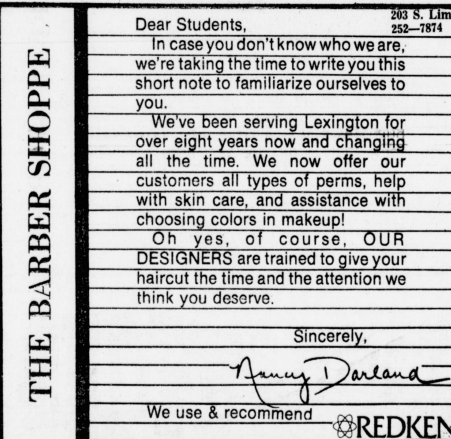 THE BARBER SHOPPE
203 S. Lim
252—7874
Dear Students,
In case you don't know who we are,
we're taking the time to write you this
short note to familiarize ourselves to
you.
We've been serving Lexington for
over eight years now and changing
all the time. We now offer our
customers all types of perms, help
with skin care, and assistance with
choosing colors in makeup!
Oh yes, of course, OUR
DESIGNERS are trained to give your
haircut the time and the attention we
think you deserve.
Sincerely,
Nancy Darland
We use & recommend
REDKEN